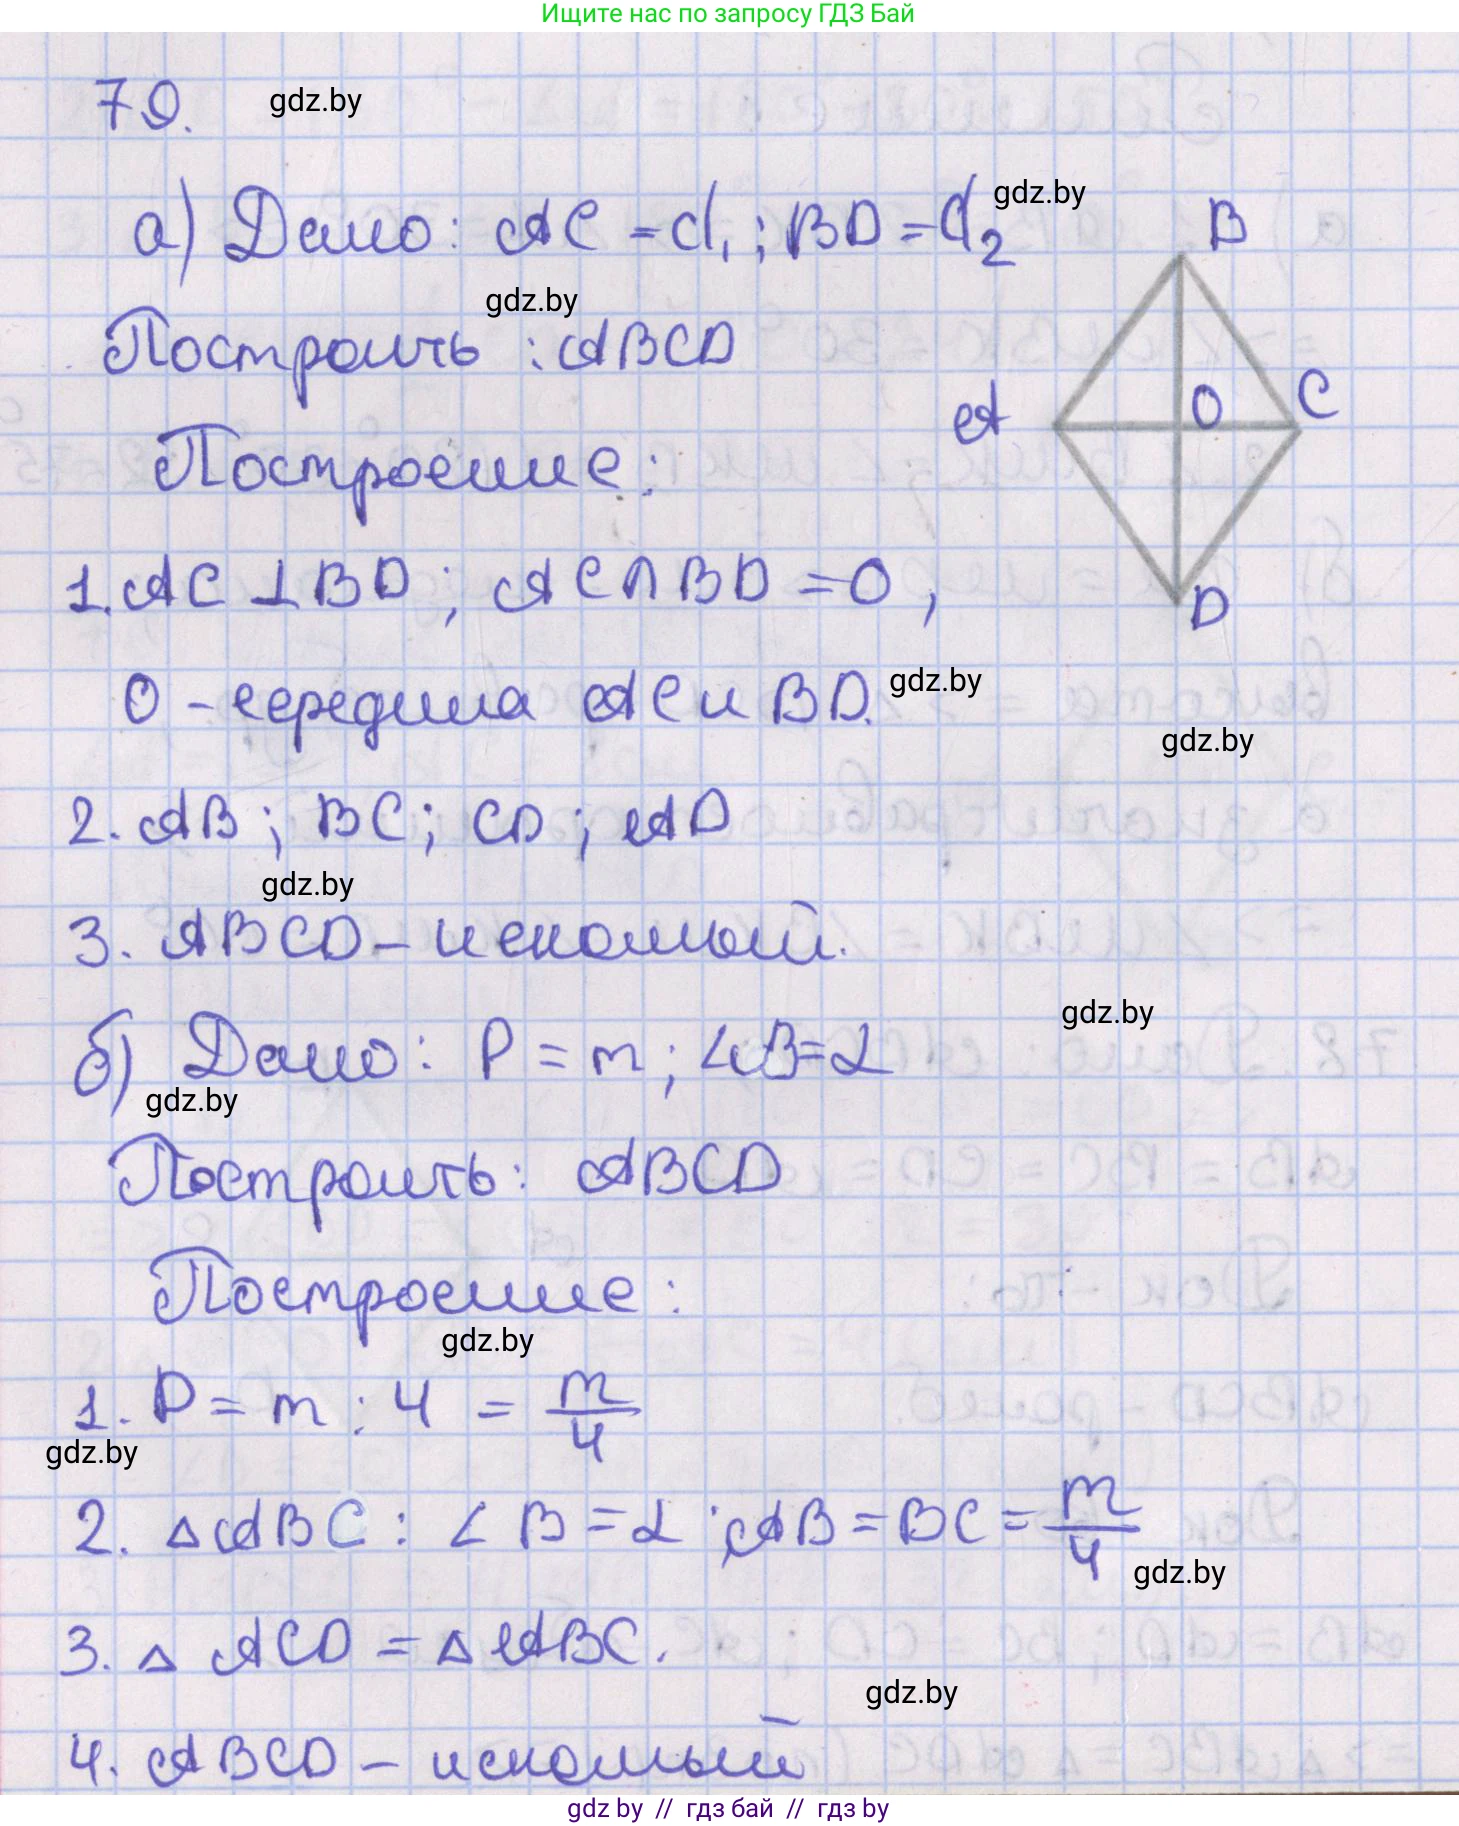 Ищите нас по запросу ГДЗ Бай
79. gdz.by
а) Дано: AC = d₁; BD = d₂ gdz.by
B
gdz.by
Построить: ABCD
A O C
Построение:
1. AC ⊥ BD; AC ∩ BD = O,
D
O - середина AC и BD. gdz.by
gdz.by
2. AB; BC; CD; AD
gdz.by
3. ABCD - искомый.
gdz.by
б) Дано: P = m; ∠B = α
gdz.by
Построить: ABCD
Построение:
gdz.by
1. P = m : 4 = m/4
gdz.by
2. △ABC: ∠B = α; AB = BC = m/4
gdz.by
3. △ ACD = △ ABC.
gdz.by
4. ABCD - искомый
gdz by // гдз бай // гдз by